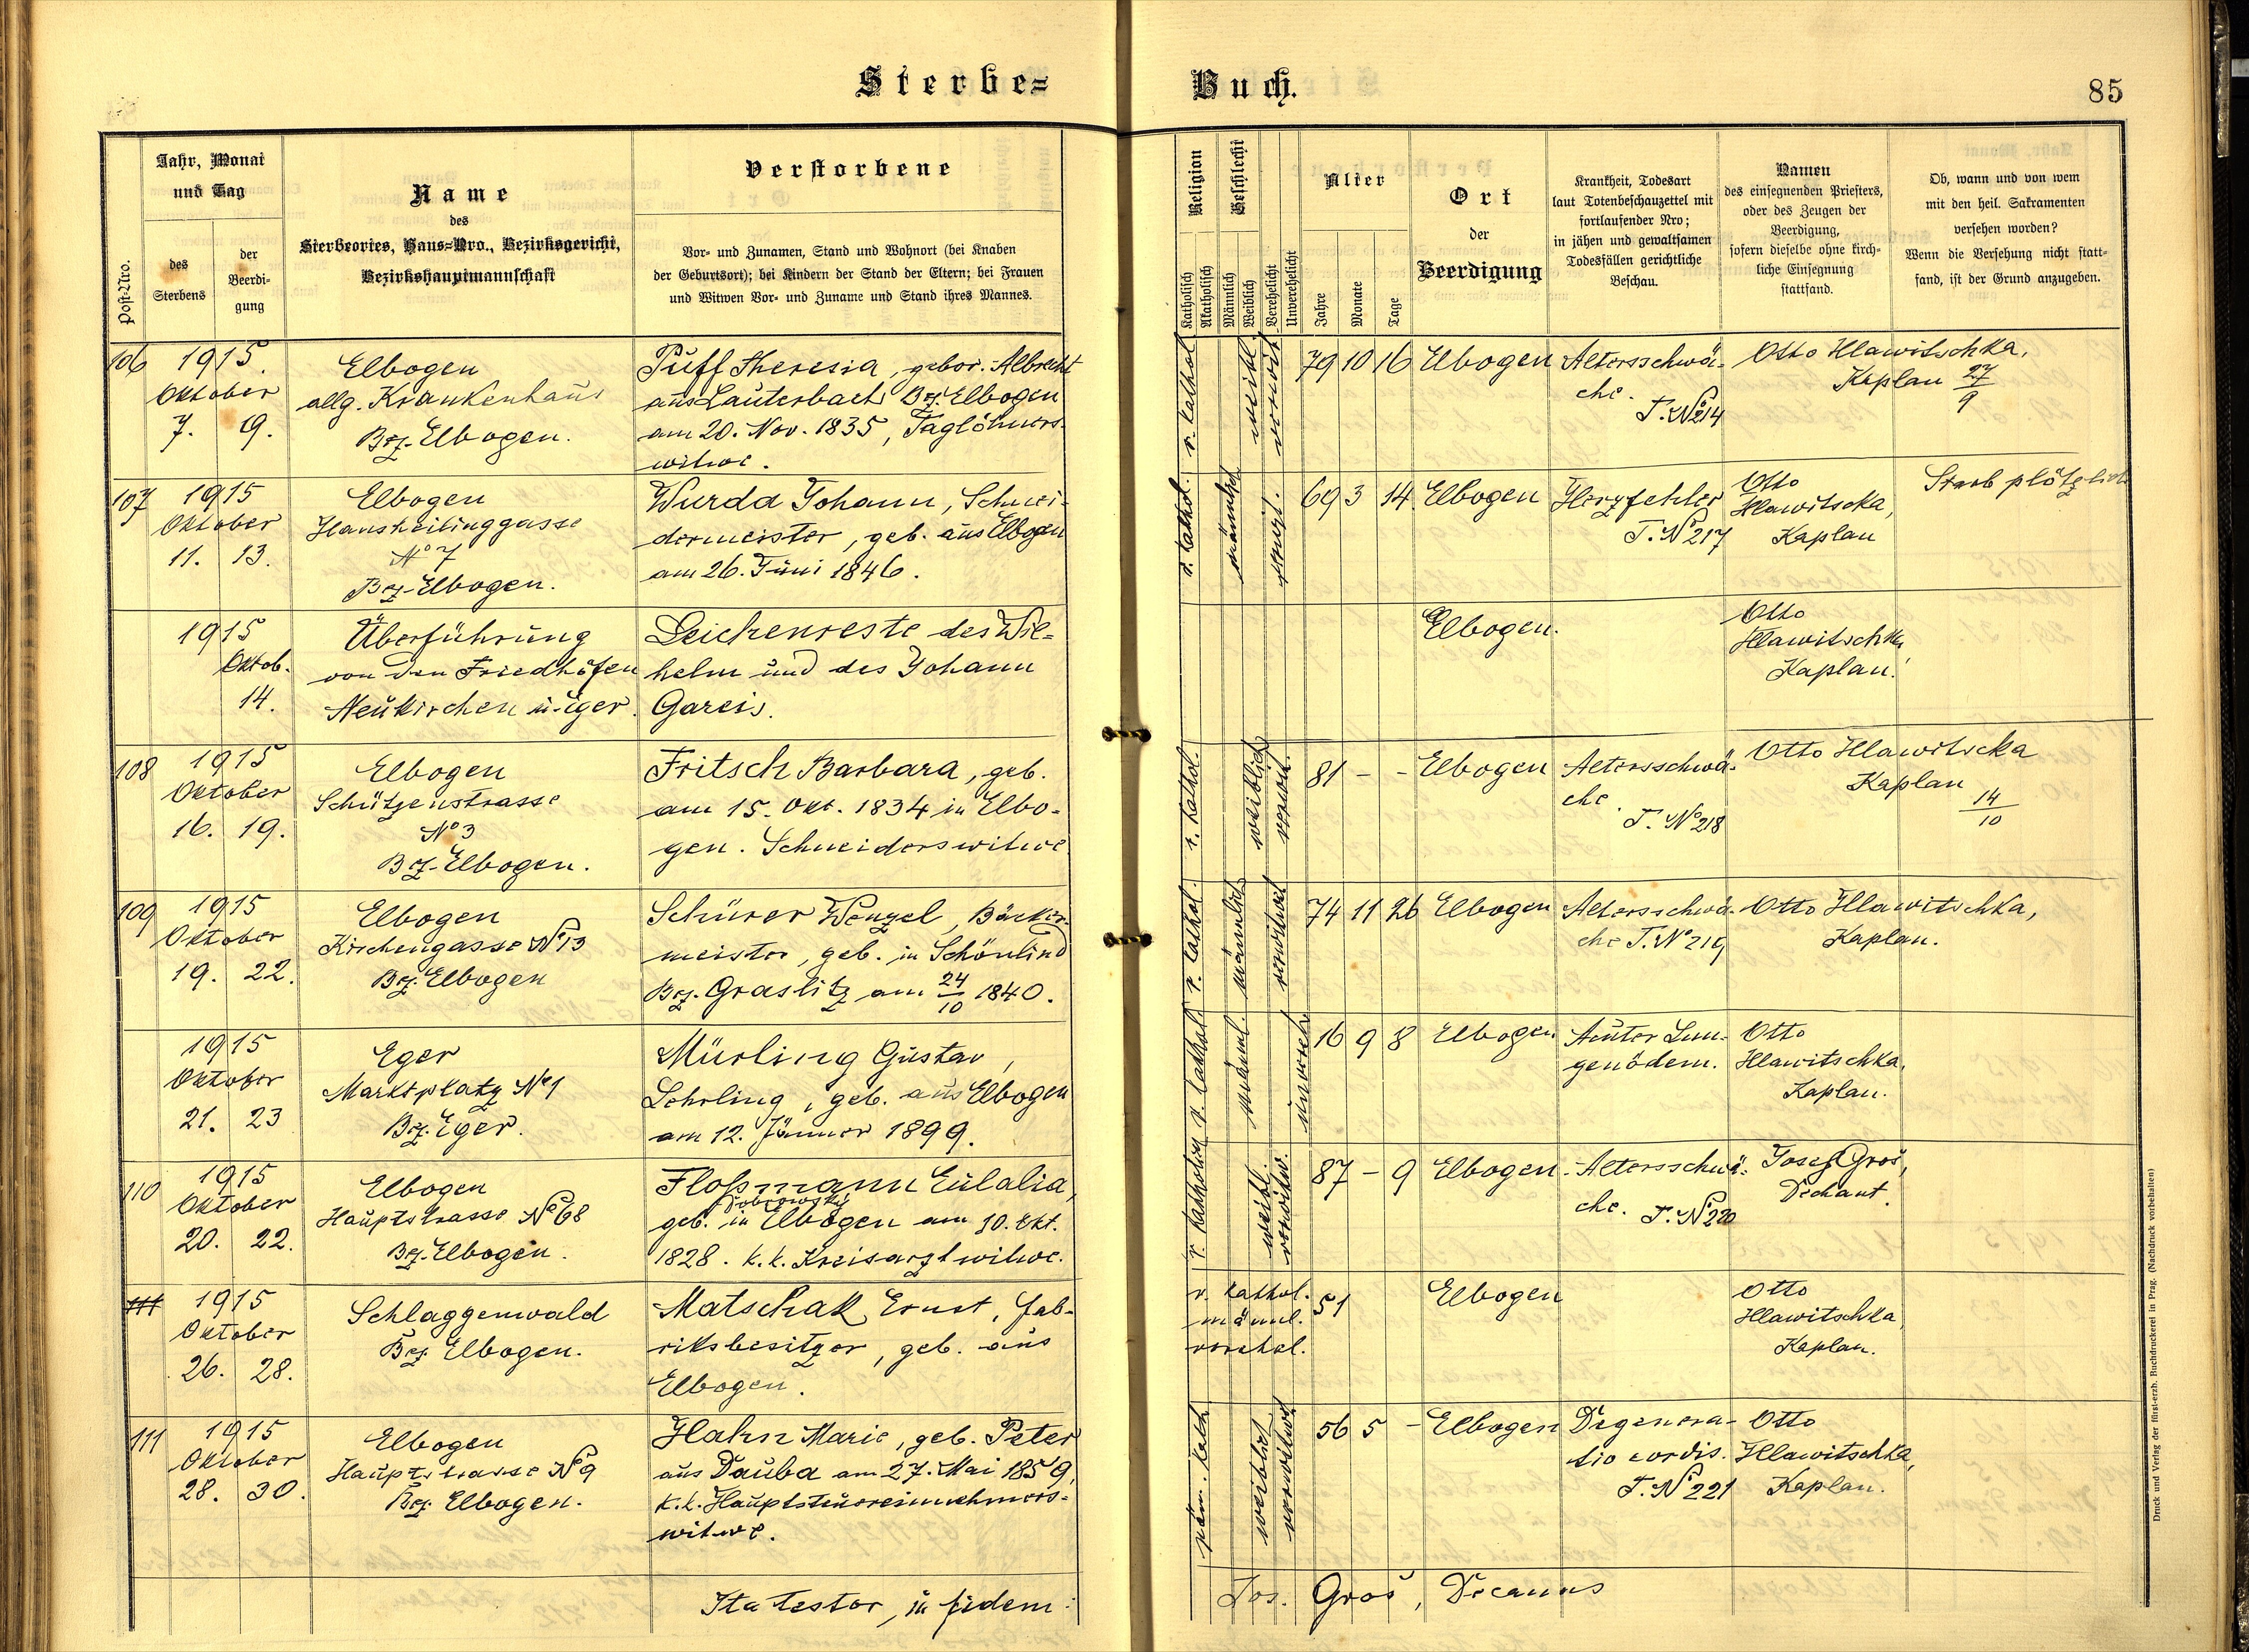 Sterbe=
Buch.
85
Post-Nro.
Jahr, Monat
und Tag
des
Sterbens
der
Beerdi-
gung
Name
des
Sterbeortes, Haus-Nro., Bezirksgericht,
Bezirkshauptmannschaft
Verstorbene
Vor- und Zunamen, Stand und Wohnort (bei Knaben
der Geburtsort); bei Kindern der Stand der Eltern; bei Frauen
und Witwen Vor- und Zuname und Stand ihres Mannes.
Religion
Katholisch
Akatholisch
Geschlecht
Männlich
Weiblich
Verehelicht
Unverehelicht
Alter
Jahre
Monate
Tage
Ort
der
Beerdigung
Krankheit, Todesart
laut Totenbeschauzettel mit
fortlaufender Nro;
in jähen und gewaltsamen
Todesfällen gerichtliche
Beschau.
Namen
des einsegnenden Priesters,
oder des Zeugen der
Beerdigung,
sofern dieselbe ohne kirch-
liche Einsegnung
stattfand.
Ob, wann und von wem
mit den heil. Sakramenten
versehen worden?
Wenn die Versehung nicht statt-
fand, ist der Grund anzugeben.
106
1915.
Oktober
7. 9.
Elbogen
allg. Krankenhaus
Bez. Elbogen.
Puff Theresia, gebor. Albrecht
aus Lauterbach Bez. Elbogen
am 20. Nov. 1835, Taglöhners-
witwe.
r. kathol.
weibl.
verwit.
79 10 16
Elbogen
Altersschwä-
che.
T. No 214
Otto Hlawitschka,
Kaplan 27/9
107
1915
Oktober
11. 13.
Elbogen
Hansheilinggasse
No 7
Bez. Elbogen.
Wurda Johann, Schnei-
dermeister, geb. aus Elbogen
am 26. Juni 1846.
r. kathol.
männlich
69 3 14
Elbogen
Herzfehler
T. No 217
Otto
Hlawitscka,
Kaplan
Starb plötzlich
1915
Oktob.
14.
Überführung
von den Friedhöfen
Neukirchen u. Eger.
Leichenreste des Wil-
helm und des Johann
Gareis.
Elbogen.
Otto
Hlawitschka
Kaplan.
108
1915
Oktober
16. 19.
Elbogen
Schützenstrasse
No 3
Bez. Elbogen.
Fritsch Barbara, geb.
am 15. Okt. 1834 in Elbo-
gen. Schneiderswitwe
r. kathol.
weiblich
verwit.
81 - -
Elbogen
Altersschwä-
che.
T. No 218
Otto Hlawitscka
Kaplan
14/10
109
1915
Oktober
19. 22.
Elbogen
Kirchengasse No 13
Bez. Elbogen
Schürer Wenzel, Bäcker-
meister, geb. in Schönlind
Bez. Graslitz am 24/10 1840.
r. kathol.
männlich
verwitwet
74 11 26
Elbogen
Altersschwä-
che T. No 219
Otto Hlawitschka,
Kaplan.
1915
Oktober
21. 23
Eger
Marktplatz No 1
Bez. Eger.
Mürling Gustav,
Lehrling, geb. aus Elbogen
am 12. Jänner 1899.
r. kathol.
männl.
unvereh.
16 9 8
Elbogen
Akuter Lun-
genödem.
Otto
Hlawitschka,
Kaplan.
110
1915
Oktober
20. 22.
Elbogen
Hauptstrasse No 68
Bez. Elbogen.
Floßmann Eulalia,
Dobrowsky
geb. in Elbogen am 10. Okt.
1828. k. k. Kreisarztwitwe.
r. katholisch
weibl.
verwitw.
87 - 9
Elbogen.
Altersschwä-
che. T. No 220
Josef Groš,
Dechant.
111
1915
Oktober
26. 28.
Schlaggenwald
Bez. Elbogen.
Matschak Ernst, Fab-
riksbesitzer, geb. aus
Elbogen.
r. kathol.
männl.
verehel.
51
Elbogen
Otto
Hlawitschka,
Kaplan.
111
1915
Oktober
28. 30.
Elbogen
Hauptstrasse No 9
Bez. Elbogen.
Hahn Marie, geb. Peter
aus Dauba am 27. Mai 1859,
k. k. Hauptsteuereinnehmers-
witwe.
röm. kath.
weiblich
verwitwet
56 5 -
Elbogen
Degenera-
tio cordis.
T. No 221
Otto
Hlawitschka,
Kaplan.
Ita testor, in fidem:
Jos. Groš, Decanus
Druck und Verlag der fürst-erzb. Buchdruckerei in Prag. (Nachdruck vorbehalten)